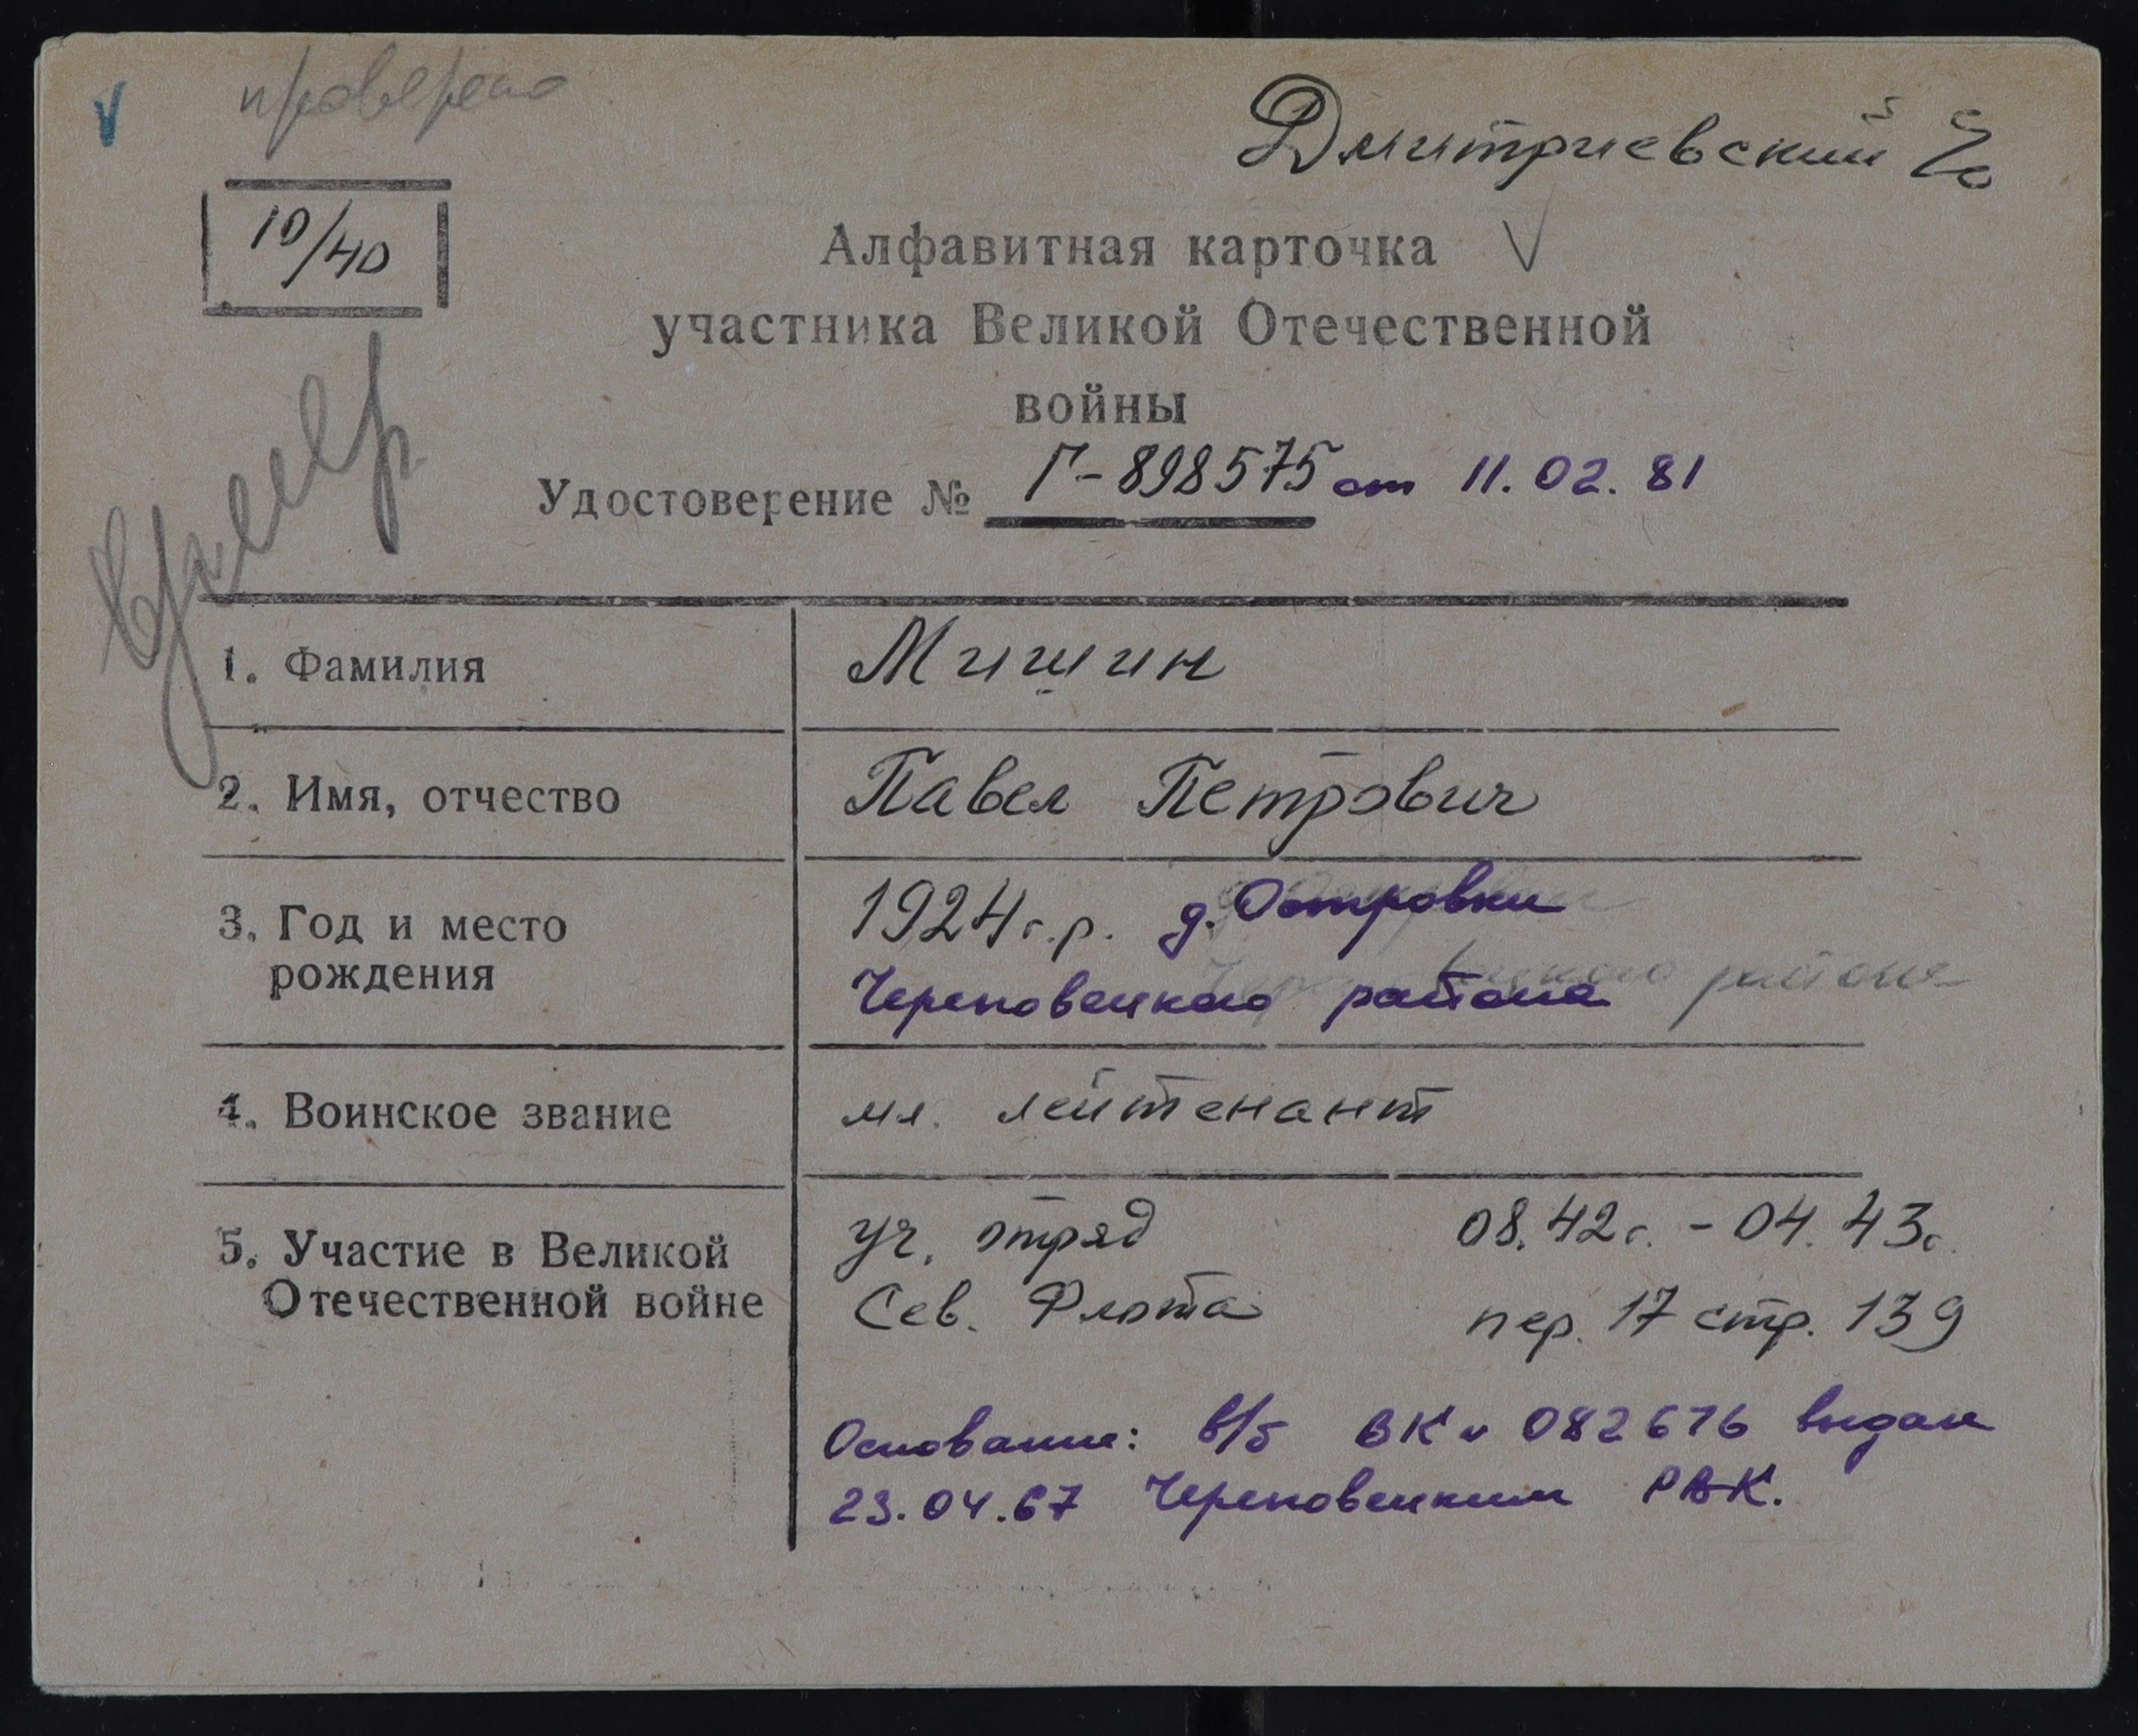 проверено
Дмитриевский
10/40
Алфавитная карточка
участника Великой Отечественной
войны
Удостоверение № Г-898575 от 11.02.81
умер
1. Фамилия Мишин
2. Имя, отчество Павел Петрович
3. Год и место рождения 1924 г.р. д. Островки
Череповецкого района
4. Воинское звание мл. лейтенант
5. Участие в Великой Отечественной войне уч. отряд 08.42 г. - 04.43 г.
Сев. Флота пер. 17 стр. 139
Основание: в/б ВК № 082676 выдан
23.04.67 Череповецким РВК.